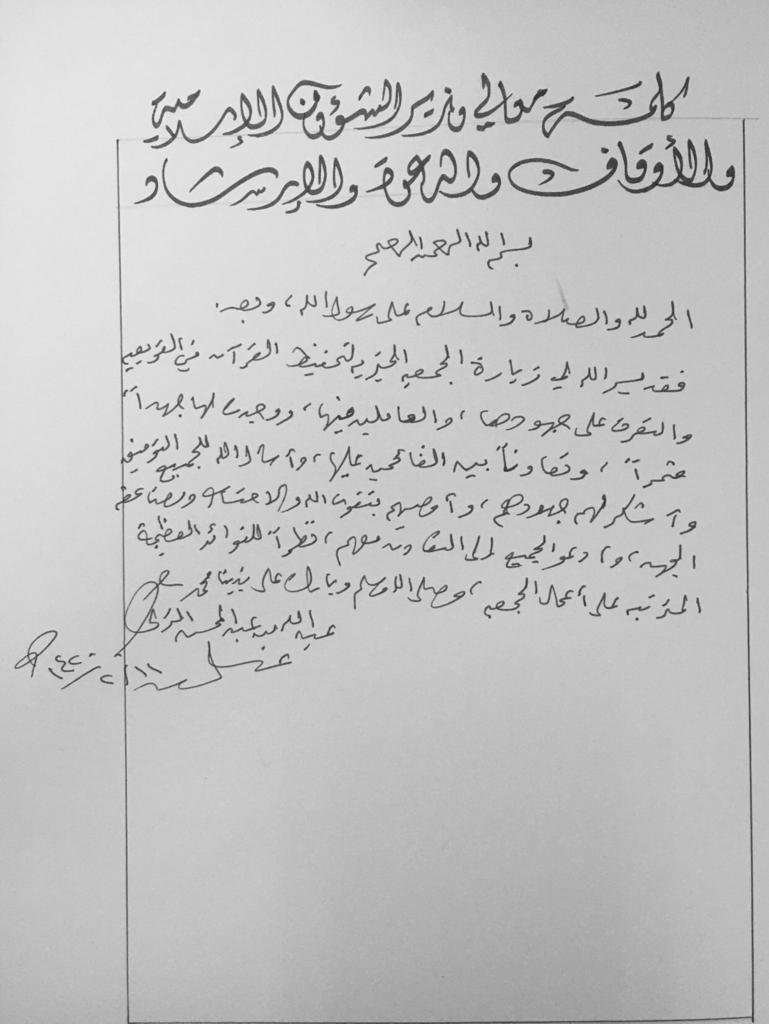 كلمة معالي وزير الشؤون الإسلامية
والأوقاف والدعوة والإرشاد
بسم الله الرحمن الرحيم
الحمد لله والصلاة والسلام على رسول الله، وبعد.
فقد يسر الله لي زيارة الجمعية الخيرية لتحفيظ القرآن في القويعية
والتعرف على جهودها، والعاملين فيها، ووجدت لها جهداً
مثمراً، وتعاوناً بين القائمين عليها، وأسأل الله للجميع التوفيق
وأشكر لهم جهودهم، وأوصيهم بتقوى الله والاحتساب ومضاعفة
الجهد، وأدعو الجميع إلى التعاون معهم، نظراً للفوائد العظيمة
المترتبة على أعمال الجمعية، وصلى الله وسلم وبارك على نبينا محمد
عبد الله بن عبد المحسن التركي
١٤٢٠/٢/١١